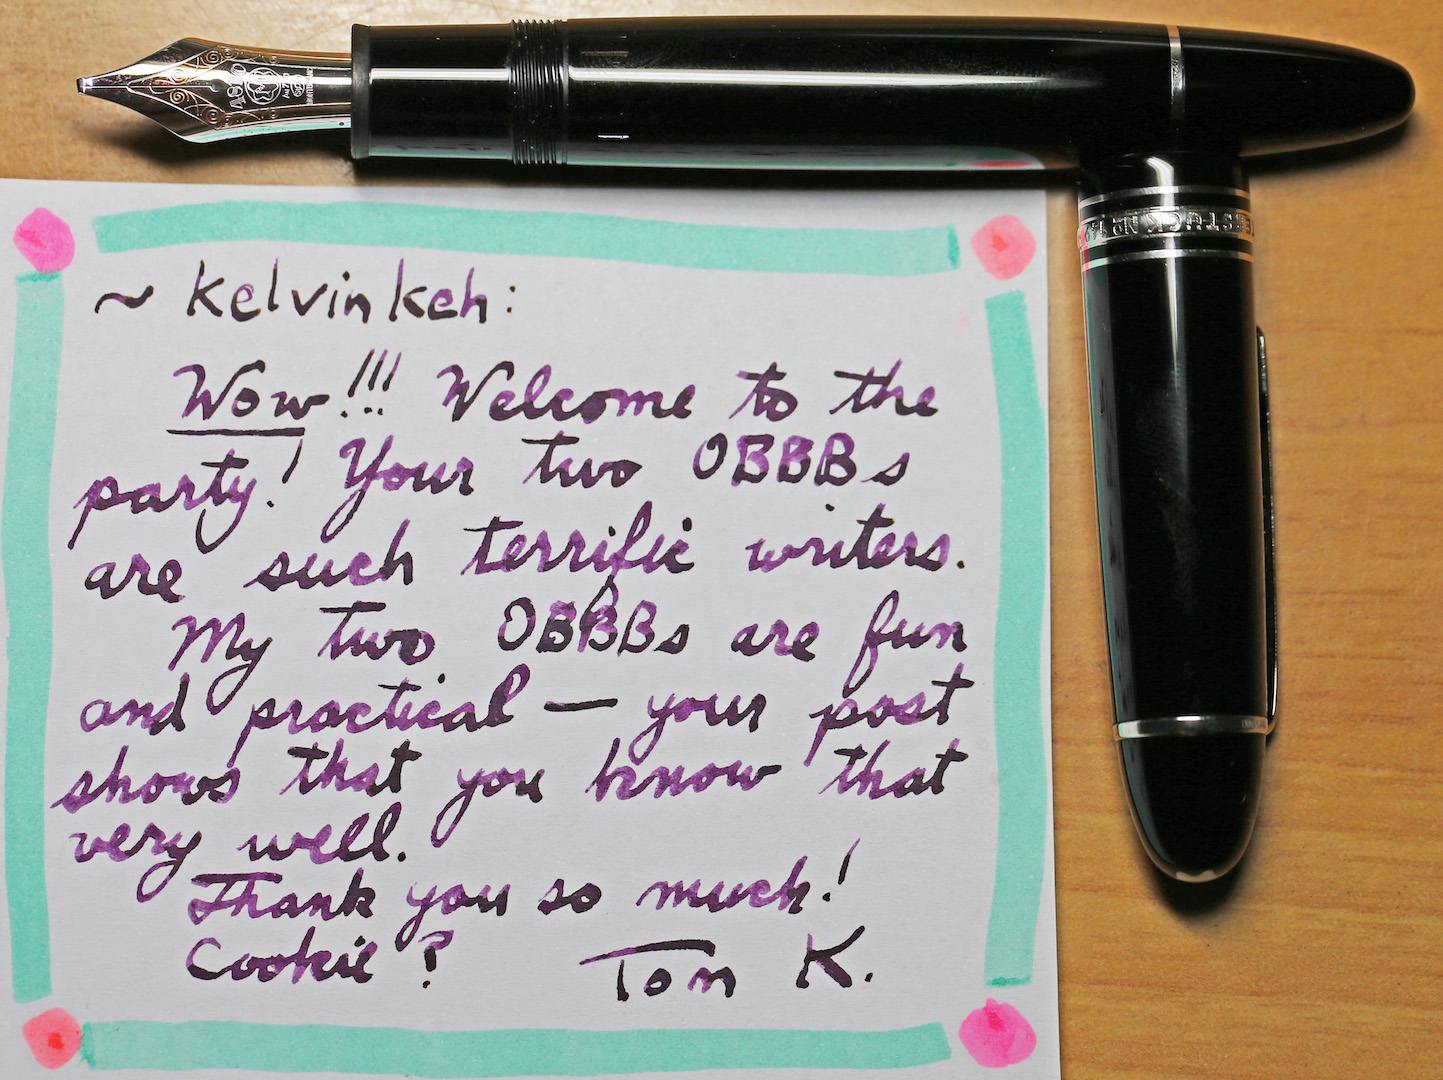 ~ Kelvinkeh:
Wow!!! Welcome to the
party! Your two OBBBs
are such terrific writers.
My two OBBBs are fun
and practical — your post
shows that you know that
very well.
Thank you so much!
Cookie? Tom K.